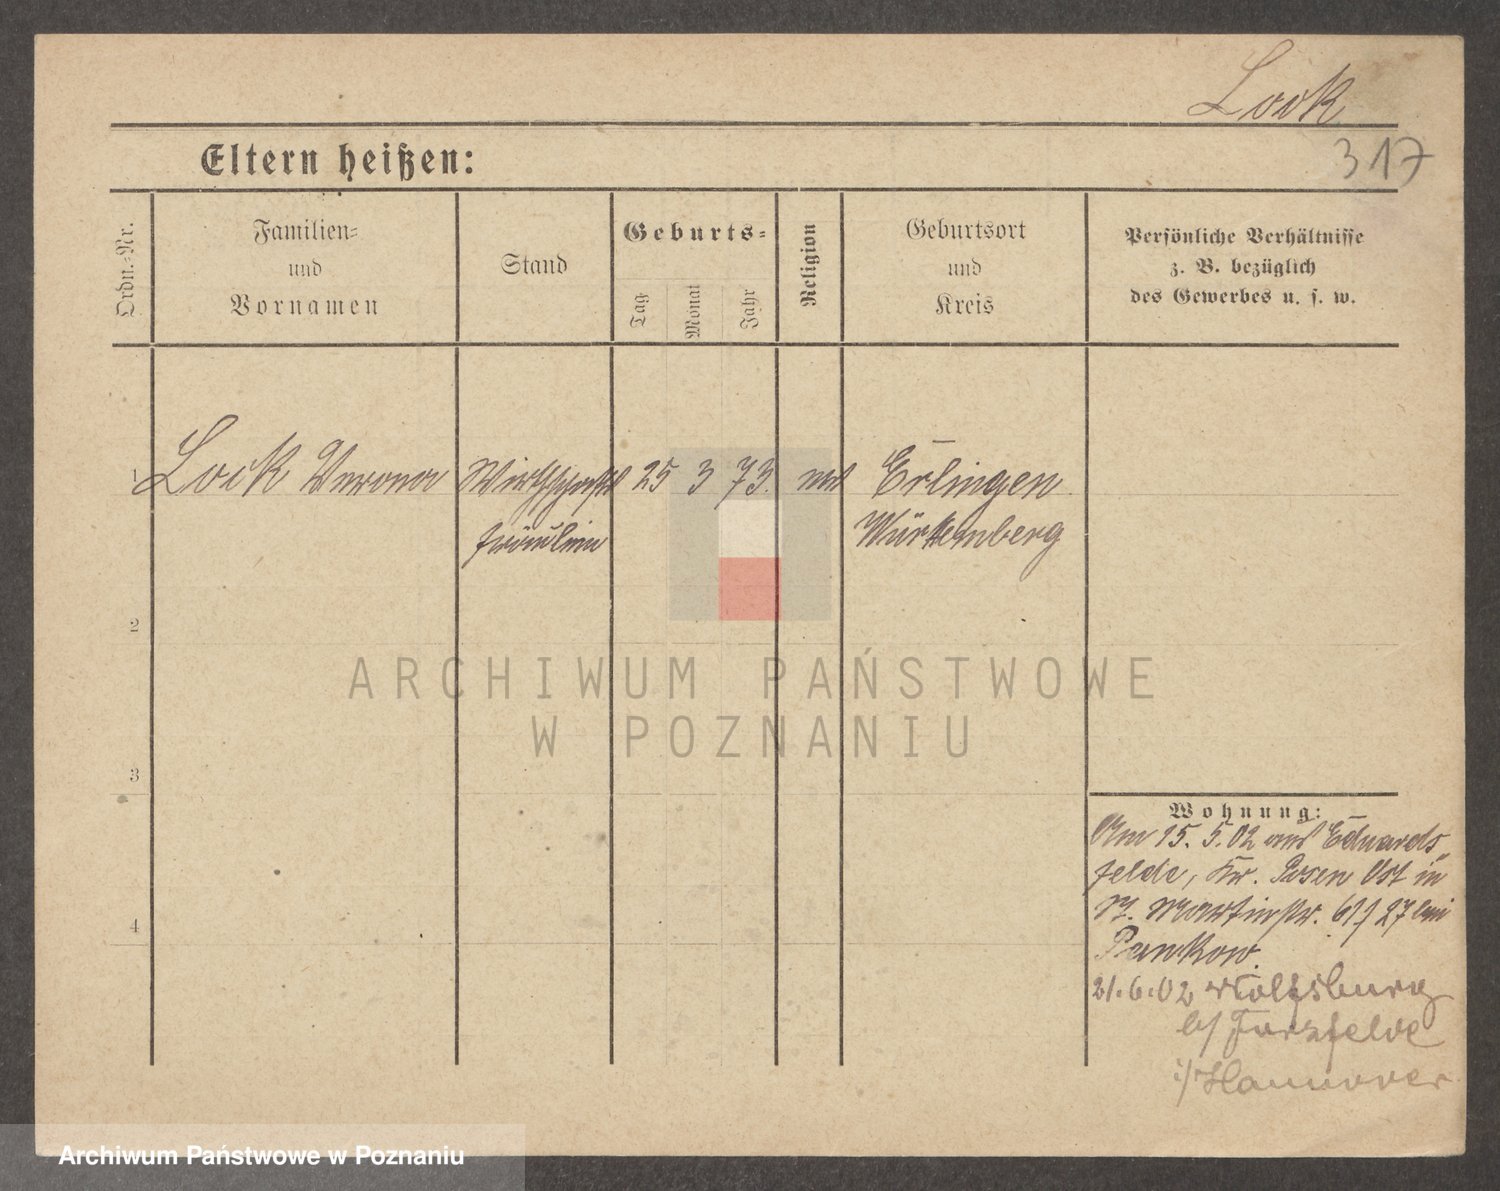 Look
317
Eltern heißen:
Ordn.-Nr.
Familien-
und
Vornamen
Stand
Geburts-
Tag
Monat
Jahr
Religion
Geburtsort
und
Kreis
Persönliche Verhältnisse
z. B. bezüglich
des Gewerbes u. s. w.
1 Look Verona Wirthschafts 25 3 73. Erlingen
fräulein Württemberg
2
3
4
ARCHIWUM PAŃSTWOWE
W POZNANIU
Wohnung:
Am 15. 5. 02 aus Eduards-
felde, Kr. Posen Ost in
St. Martinstr. 27 bei
Pankow.
21.6.02 Wolfsburg
b/
i/ Hannover
Archiwum Państwowe w Poznaniu